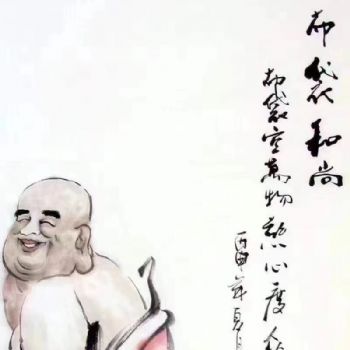 布袋和尚
布袋空萬物慈心度
丙申年夏